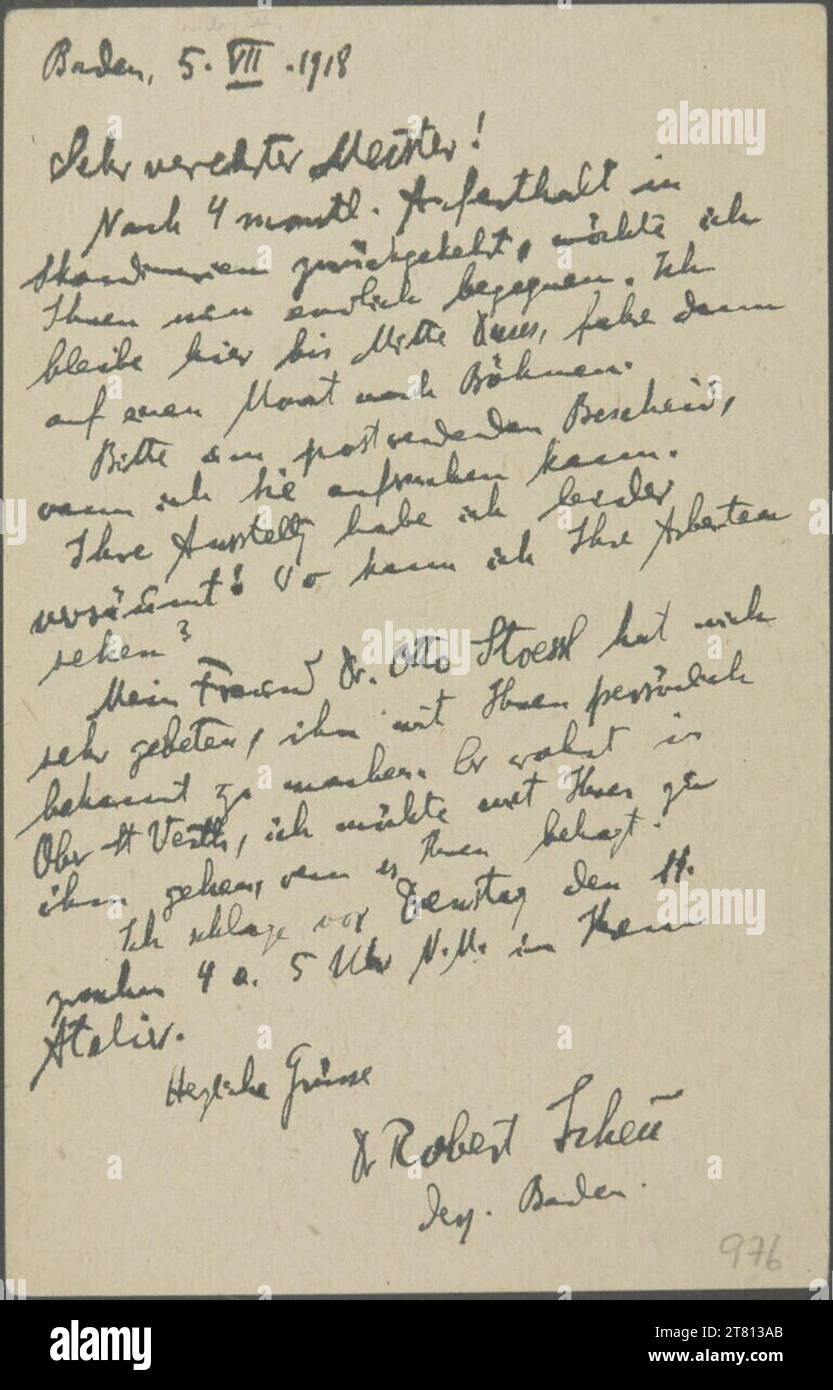 Baden, 5. VII. 1918
Sehr verehrter Meister!
Nach 4 monatl. Aufenthalt in
Skandinavien zurückgekehrt, möchte ich
Ihnen nun endlich begegnen. Ich
bleibe hier bis Mitte dieses, fahre dann
auf einen Monat nach Böhmen.
Bitte um postwendenden Bescheid,
wann ich Sie aufsuchen kann.
Ihre Ausstellg habe ich leider
versäumt! Wo kann ich Ihre Arbeiten
sehen?
Mein Freund Dr. Otto Stoessl hat mich
sehr gebeten, ihn mit Ihnen persönlich
bekannt zu machen. Er wohnt in
Ober St Veith, ich möchte mit Ihnen zu
ihm gehen, wenn es Ihnen behagt.
Ich schlage vor Dienstag den
zwischen 4 u. 5 Uhr N.M. in Ihrem
Atelier.
Herzliche Grüsse
Dr Robert Scheu
Baden.
976
alamy
alamy
alamy
alamy
Image ID: 2T813AB
www.alamy.com